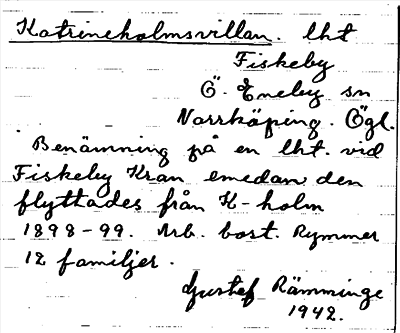 Katrineholmsvillan. lht
Fiskeby
Ö. Eneby sn
Norrköping. Ögl.
Benämning på en lht. vid
Fiskeby Kran emedan den
flyttades från K-holm
1898-99. Arb. bost. Rymmer
12 familjer.
Gustef Rämminge
1942.